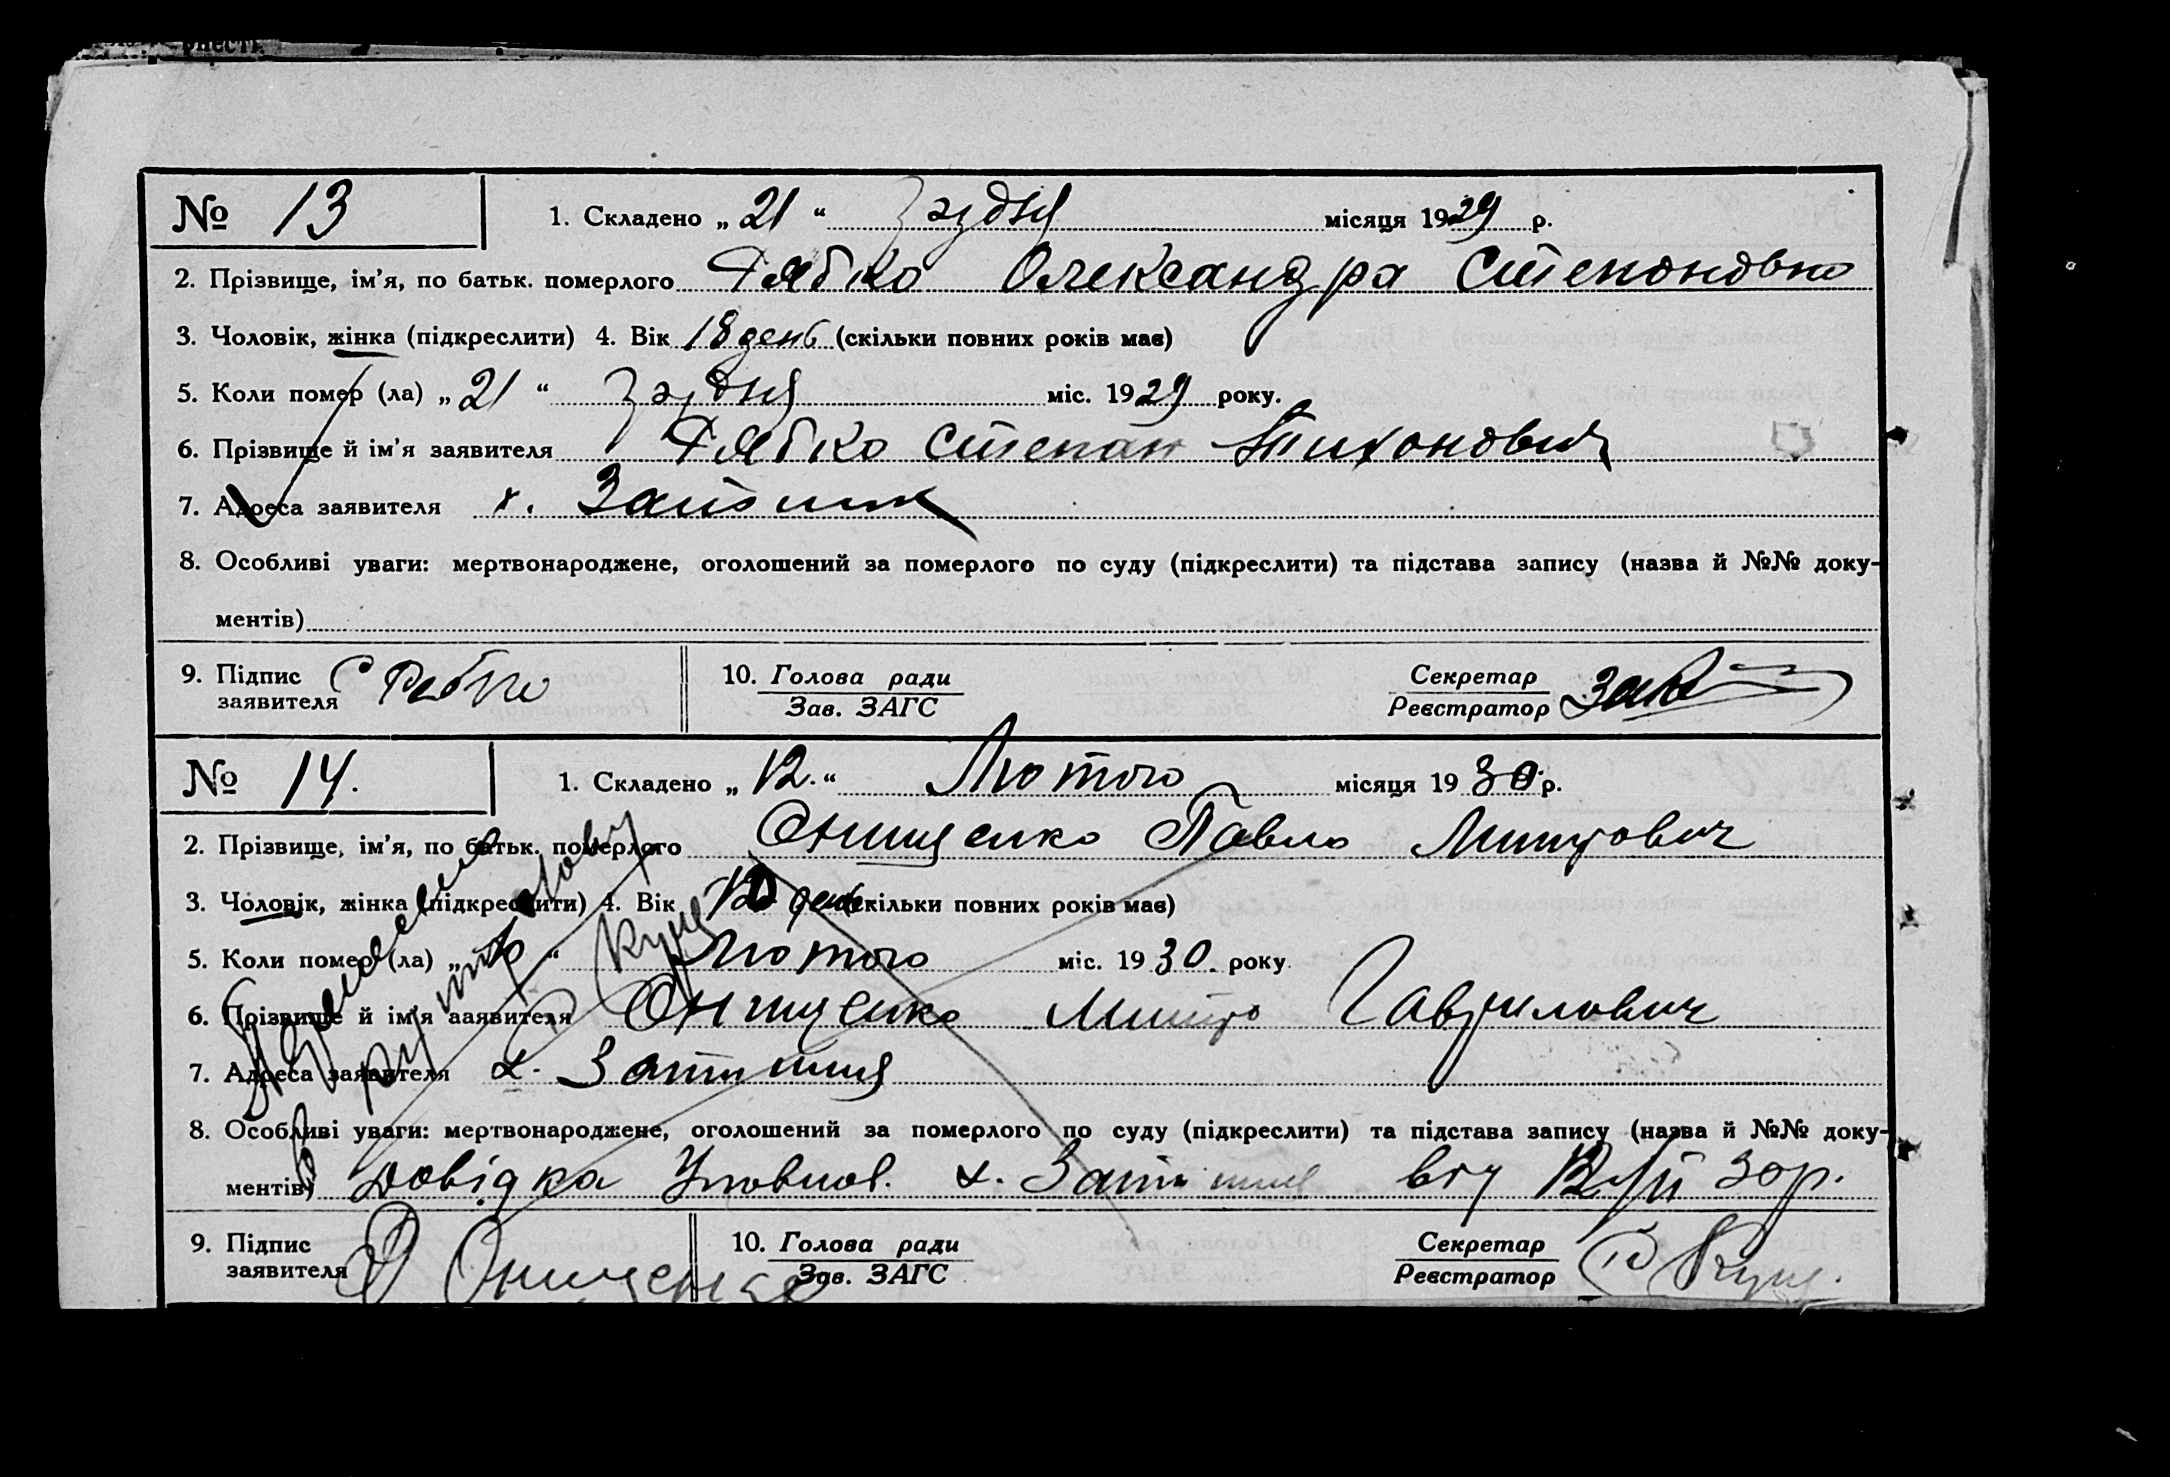 № 13
1. Складено „ 21 “ грудня місяця 1929 р.
2. Прізвище, ім'я, по батьк. померлого Рябко Олександра Степоновна
3. Чоловік, жінка (підкреслити) 4. Вік 18 день (скільки повних років має)
5. Коли помер (ла) „ 21 “ грудня міс. 1929 року.
6. Прізвище й ім'я заявителя Рябко Степан Тихонович
7. Адреса заявителя х.
8. Особливі уваги: мертвонароджене, оголошений за померлого по суду (підкреслити) та підстава запису (назва й №№ доку-
ментів)
9. Підпис заявителя С Рябко
10. Голова ради
Зав. ЗАГС
Секретар
Реєстратор
№ 14.
1. Складено „ 12. “ Лютого місяця 1930 р.
2. Прізвище, ім'я, по батьк. померлого Онищенко Павло Митрович
3. Чоловік, жінка (підкреслити) 4. Вік день (скільки повних років має)
5. Коли помер (ла) „ “ Лютого міс. 1930. року
6. Прізвище й ім'я заявителя Онищенко Митро Гаврилович
7. Адреса заявителя х. Затишшя
8. Особливі уваги: мертвонароджене, оголошений за померлого по суду (підкреслити) та підстава запису (назва й №№ доку-
ментів) Довідка Уповнов. х. Затишшя від 12/II 30р.
9. Підпис заявителя Онищенко
10. Голова ради
Зав. ЗАГС
Секретар
Реєстратор Кущ